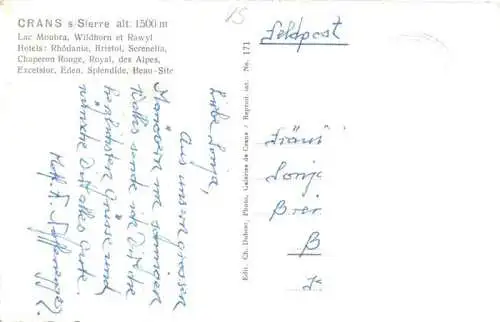 CRANS s/Sierre alt. 1500 m
Lac Moubra, Wildhorn et Rawyl
Hotels: Rhôdania, Bristol, Serenella,
Chaperon Rouge, Royal, des Alpes,
Excelsior, Eden, Splendide, Beau-Site
Liebe Sonja,
Aus unsern grossen
Manövern im sonnigen
Wallis sende ich Dir die
herzlichsten Grüsse und
wünsche Dir alles Gute.
Edit. Ch. Dubost, Photo, Galeries de Crans / Reprod. int. No. 171
Feldpost
Fräul
Sonj
Brei
B